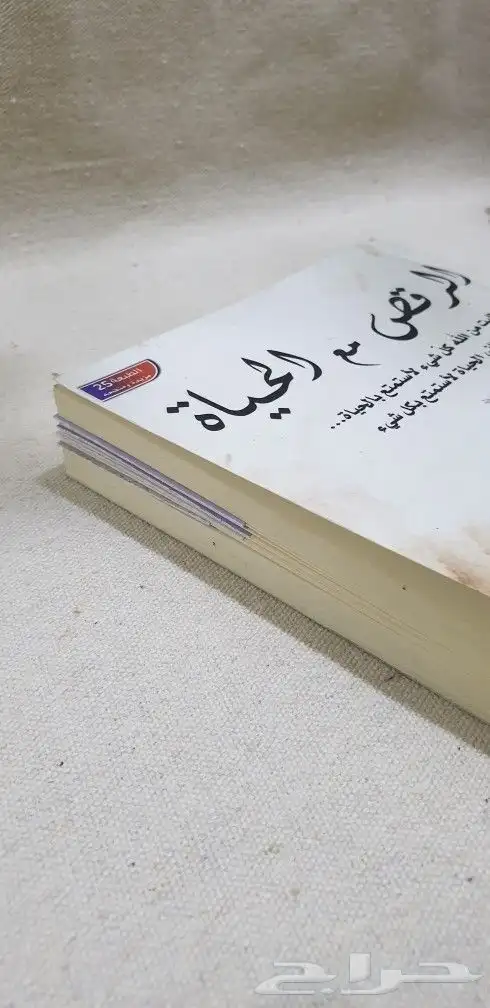 الرقص مع الحياة
من الله كل شيء لأستمتع بالحياة...
الحياة لأستمتع بكل شيء
الطبعة 25
مزيدة ومنقحة
حراج